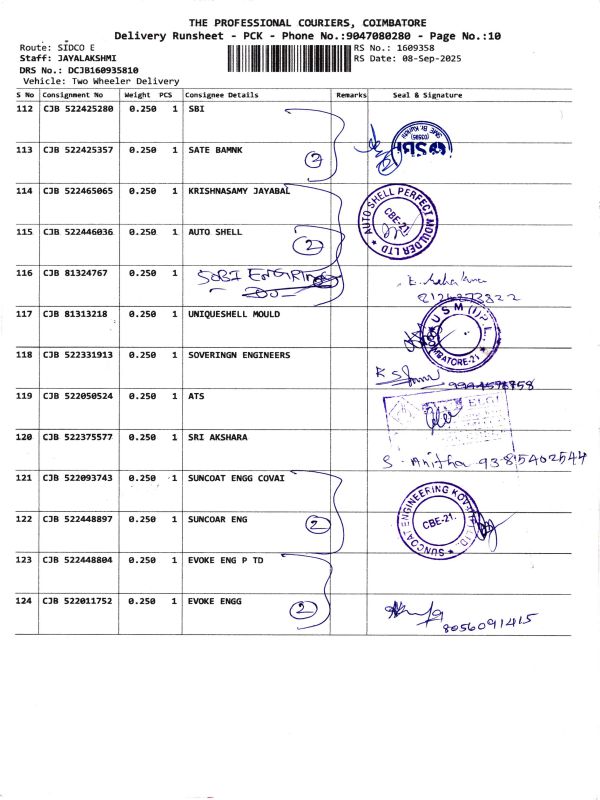 THE PROFESSIONAL COURIERS, COIMBATORE
Delivery Runsheet - PCK - Phone No.:9047080280 - Page No.:10
Route: SIDCO E
RS No.: 1609358
Staff: JAYALAKSHMI
RS Date: 08-Sep-2025
DRS No.: DCJB160935810
Vehicle: Two Wheeler Delivery
S No Consignment No Weight PCS Consignee Details Remarks Seal & Signature
112 CJB 522425280 0.250 1 SBI
SBI
113 CJB 522425357 0.250 1 SATE BAMNK
2
114 CJB 522465065 0.250 1 KRISHNASAMY JAYABAL
AUTO SHELL PERFECT MOULDER LTD
CBE-21.
115 CJB 522446036 0.250 1 AUTO SHELL
2
116 CJB 81324767 0.250 1
117 CJB 81313218 0.250 1 UNIQUESHELL MOULD
U S M (I) P. L.
COIMBATORE-21
118 CJB 522331913 0.250 1 SOVERINGN ENGINEERS
119 CJB 522050524 0.250 1 ATS
ELGI
120 CJB 522375577 0.250 1 SRI AKSHARA
S. Anitha 9385402544
121 CJB 522093743 0.250 1 SUNCOAT ENGG COVAI
SUNCOAT ENGINEERING KOVAI
CBE-21.
122 CJB 522448897 0.250 1 SUNCOAR ENG
2
123 CJB 522448804 0.250 1 EVOKE ENG P TD
124 CJB 522011752 0.250 1 EVOKE ENGG
2
8056091415